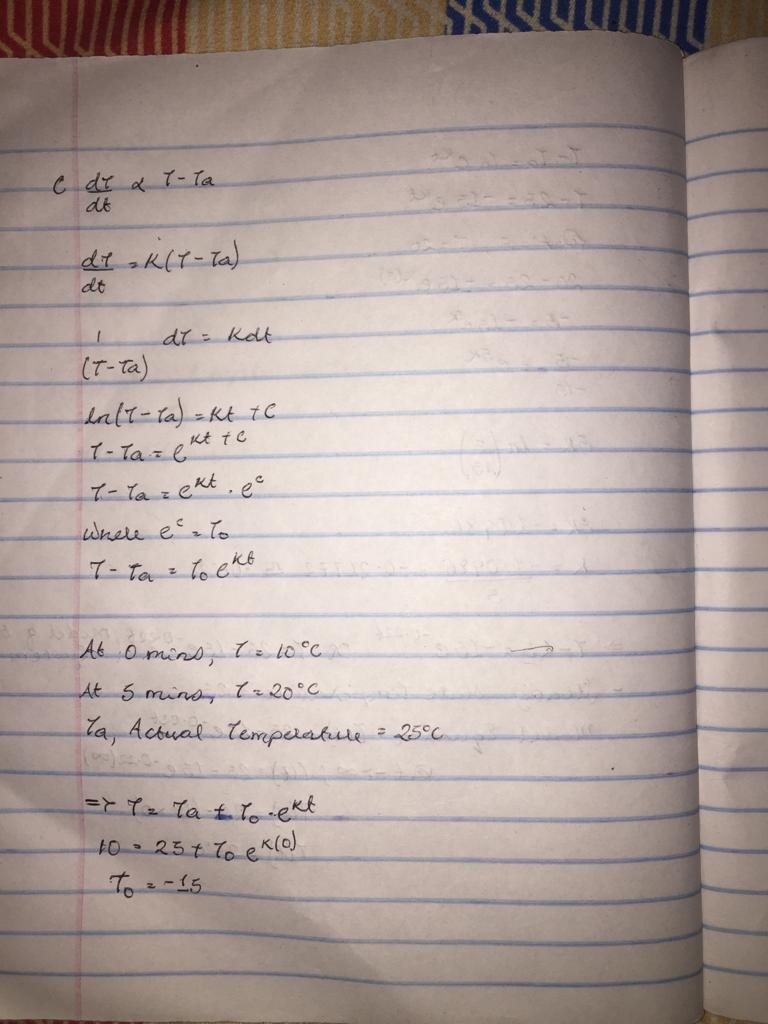 C dT/dt α T-Ta
dT/dt = K(T-Ta)
1/(T-Ta) dT = Kdt
ln(T-Ta) = Kt + C
T-Ta = e^(Kt + C)
T-Ta = e^(Kt) . e^c
Where e^c = To
T - Ta = To e^(Kt)
At 0 mins, T = 10°C →
At 5 mins, T = 20°C
Ta, Actual Temperature = 25°C
=> T = Ta + To . e^(Kt)
10 = 25 + To e^(K(0))
To = -15